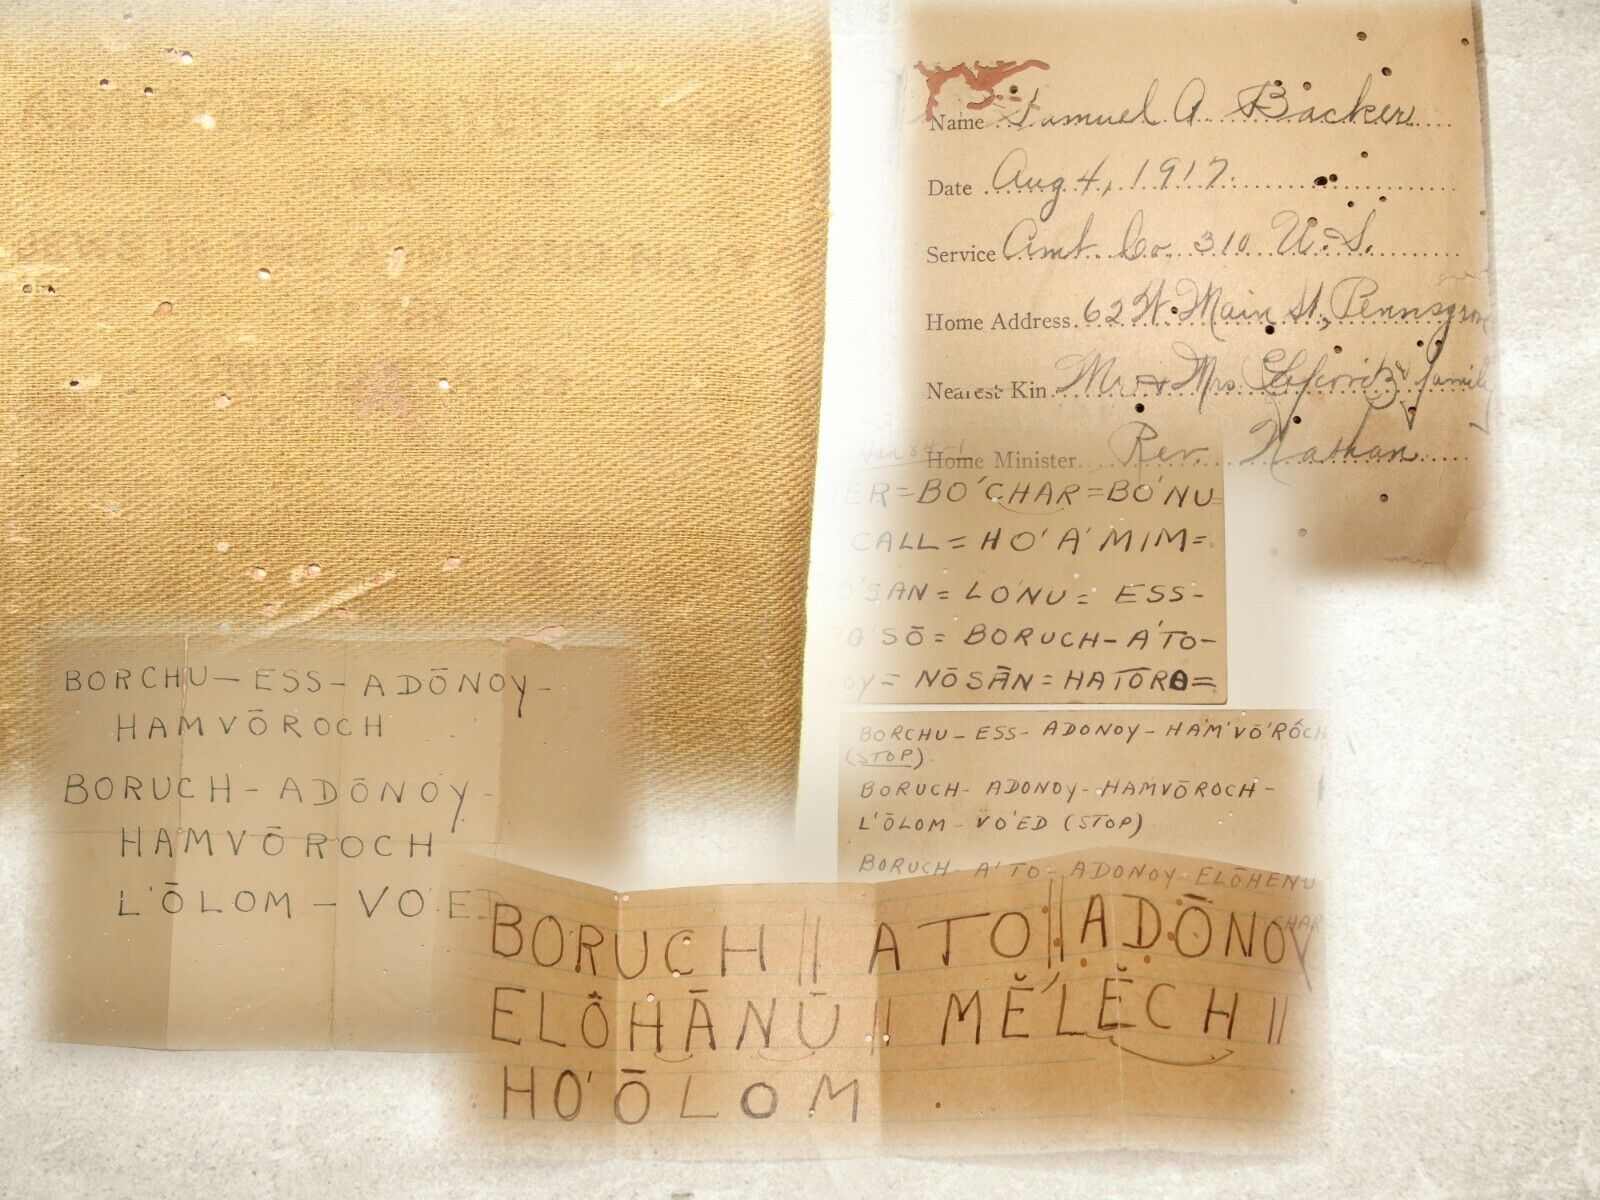 Name Samuel A. Backer
Date Aug 4, 1917.
Service Amb. Co. 310 U.S.
Home Address 62 W. Main St, Pennsgrove
Nearest Kin Mr. & Mrs. & family
Home Minister Rev. Nathan
ER=BO'CHAR=BO'NU=
CALL=HO'A'MIM=
O'SAN=LO'NU=ESS-
RO'SŌ=BORUCH-A'TO-
OY=NŌSĀN=HATŌRO=
BORCHU-ESS-ADŌNOY-
HAMVŌROCH
BORUCH-ADŌNOY-
HAMVŌROCH
L'ŌLOM-VO'ED
BORCHU-ESS-ADONOY-HA'M'VŌ'RŌCH
(STOP).
BORUCH-ADONOY-HAMVŌROCH-
L'ŌLOM-VO'ED (STOP)
BORUCH-A'TO-ADONOY-ELŌHENU
CHAR
BORUCH || ATO || ADŌNOY
ELŌHĀNŪ || MĔ'LĔCH ||
HO'ŌLOM